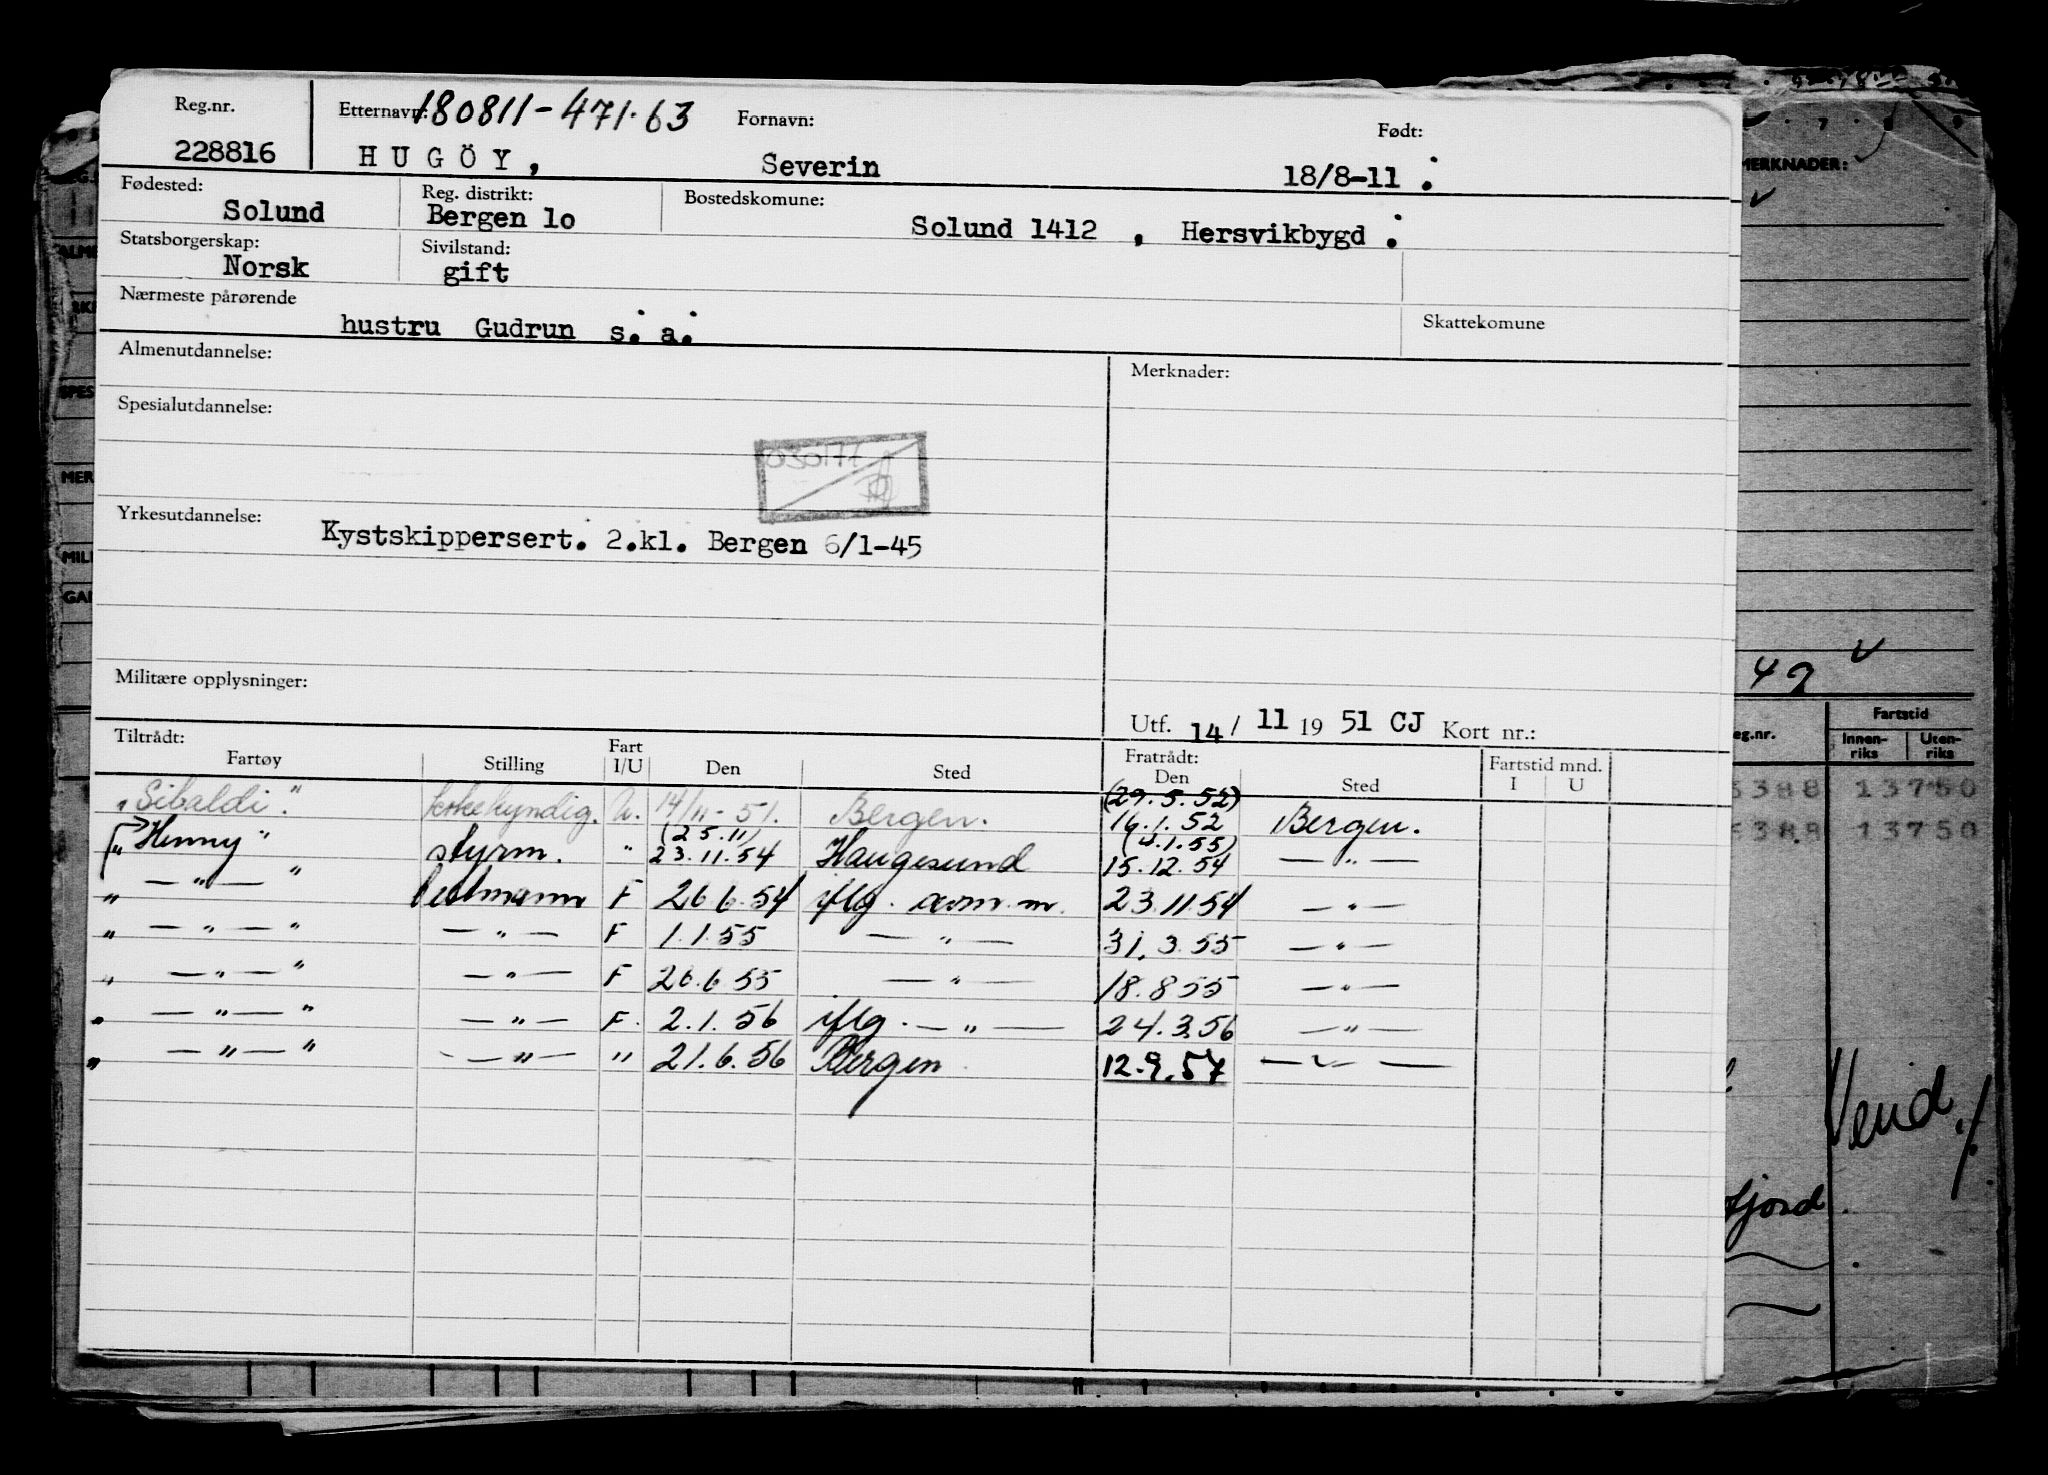 Reg.nr. Etternavn: 180811-471.63 Fornavn: Født:
228816 HUGÖY, Severin 18/8-11 .
Fødested: Reg. distrikt: Bostedskomune:
Solund Bergen lo Solund 1412 , Hersvikbygd .
Statsborgerskap: Sivilstand:
Norsk gift
Nærmeste pårørende
hustru Gudrun s. a. Skattekomune
Almenutdannelse: Merknader:
Spesialutdannelse:
030177
Yrkesutdannelse: Kystskippersert. 2.kl. Bergen 6/1-45
Militære opplysninger:
Utf. 14/ 11 19 51 CJ Kort nr.:
Tiltrådt: Fratrådt:
Fartøy Stilling Fart I/U Den Sted Den Sted Fartstid mnd. I U
(29.5.52)
"Sibaldi". U. 14/11-51. Bergen. 16.1.52 Bergen.
(25.11) (4.1.55)
"Henny" styrm. " 23.11.54 Haugesund 15.12.54 — " —
" — " — " bestmann F 26.6.54 iflg. avm. m. 23.11.54 — " —
" — " — " — " — F 1.1.55 — " — 31.3.55 — " —
" — " — " — " — F 26.6.55 — " — 18.8.55 — " —
" — " — " — " — F. 2.1.56 iflg. — " — 24.3.56 — " —
" — " — " — " — " 21.6.56 Bergen 12.9.57 — " —
MERKNADER:
49
Fartstid
Innen-riks Uten-riks
13750
13750
Vend./.
fjord.